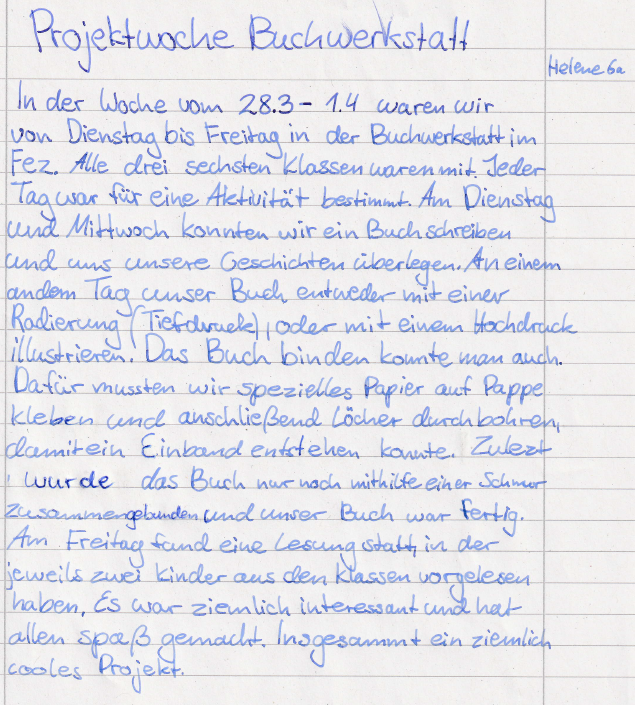 Projektwoche Buchwerkstatt
Helene 6a
In der Woche vom 28.3 - 1.4 waren wir
von Dienstag bis Freitag in der Buchwerkstatt im
Fez. Alle drei sechsten Klassen waren mit. Jeder
Tag war für eine Aktivität bestimmt. Am Dienstag
und Mittwoch konnten wir ein Buch schreiben
und uns unsere Geschichten überlegen. An einem
andem Tag unser Buch entweder mit einer
Radierung (Tiefdruck), oder mit einem Hochdruck
illustrieren. Das Buch binden konnte man auch.
Dafür mussten wir spezielles Papier auf Pappe
kleben und anschließend Löcher durchbohren,
damit ein Einband entstehen konnte. Zulezt
wurde das Buch nur noch mithilfe einer Schnur
zusammengebunden und unser Buch war fertig.
Am Freitag fand eine Lesung statt, in der
jeweils zwei Kinder aus den Klassen vorgelesen
haben. Es war ziemlich interessant und hat
allen spaß gemacht. Insgesammt ein ziemlich
cooles Projekt.